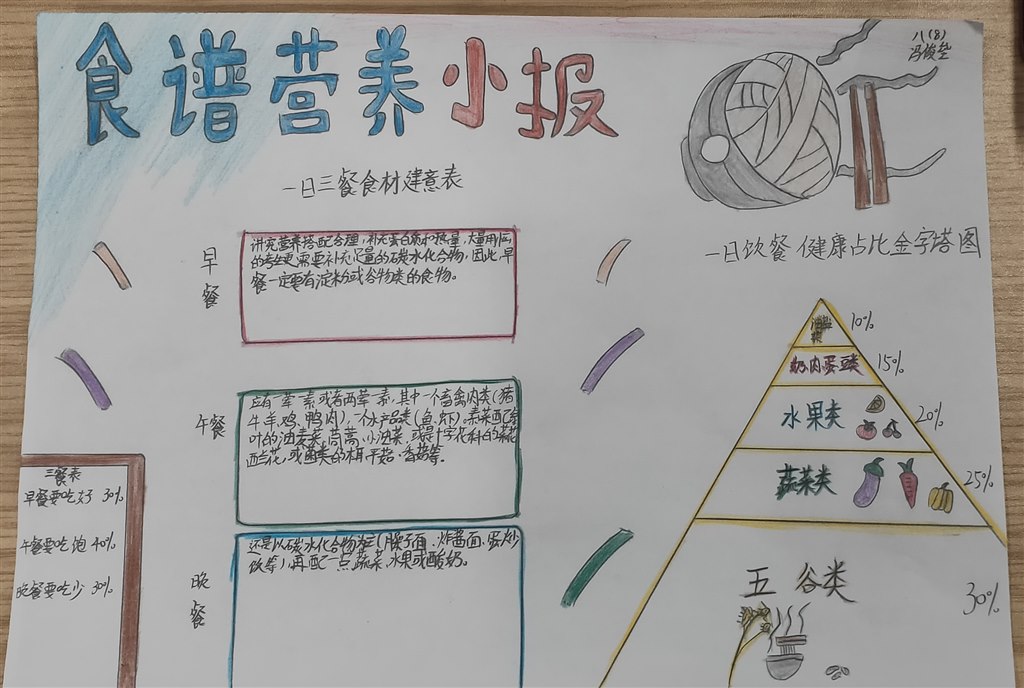 食谱营养小报
八(8)
一日三餐食材建意表
早餐
讲究营养搭配合理,补充蛋白质和热量,大量用脑
的考生更需要补充足量的碳水化合物,因此早
餐一定要有淀粉或谷物类的食物。
午餐
应有一荤一素或者两荤一素,其中一个畜禽肉类(猪
牛羊鸡鸭肉),一个水产品类(鱼、虾)。素菜配
叶的油麦菜、茼蒿、小油菜,或是十字花科的
西兰花,或菌类的
晚餐
还是以碳水化合物为主(臊子面、炸酱面、蛋炒
饭等),再配一点蔬菜、水果或酸奶。
三餐表
早餐要吃好 30%
午餐要吃饱 40%
晚餐要吃少 30%
一日饮餐 健康占比金字塔图
10%
奶肉蛋豆类 15%
水果类 20%
蔬菜类 25%
五谷类 30%